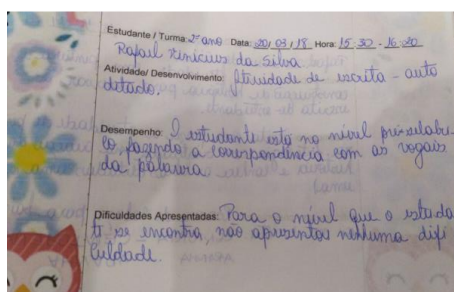 Estudante / Turma: 2º ano Data: 20/03/18 Hora: 15:30 - 16:20
Rafael Vinicius da Silva
Atividade/ Desenvolvimento: Atividade de escrita - auto
ditado.
Desempenho: O estudante está no nível pré-silábi
co, fazendo a correspondência com as vogais
da palavra.
Dificuldades Apresentadas: Para o nível que o estuda
te se encontra, não apresentou nenhuma difi
culdade.